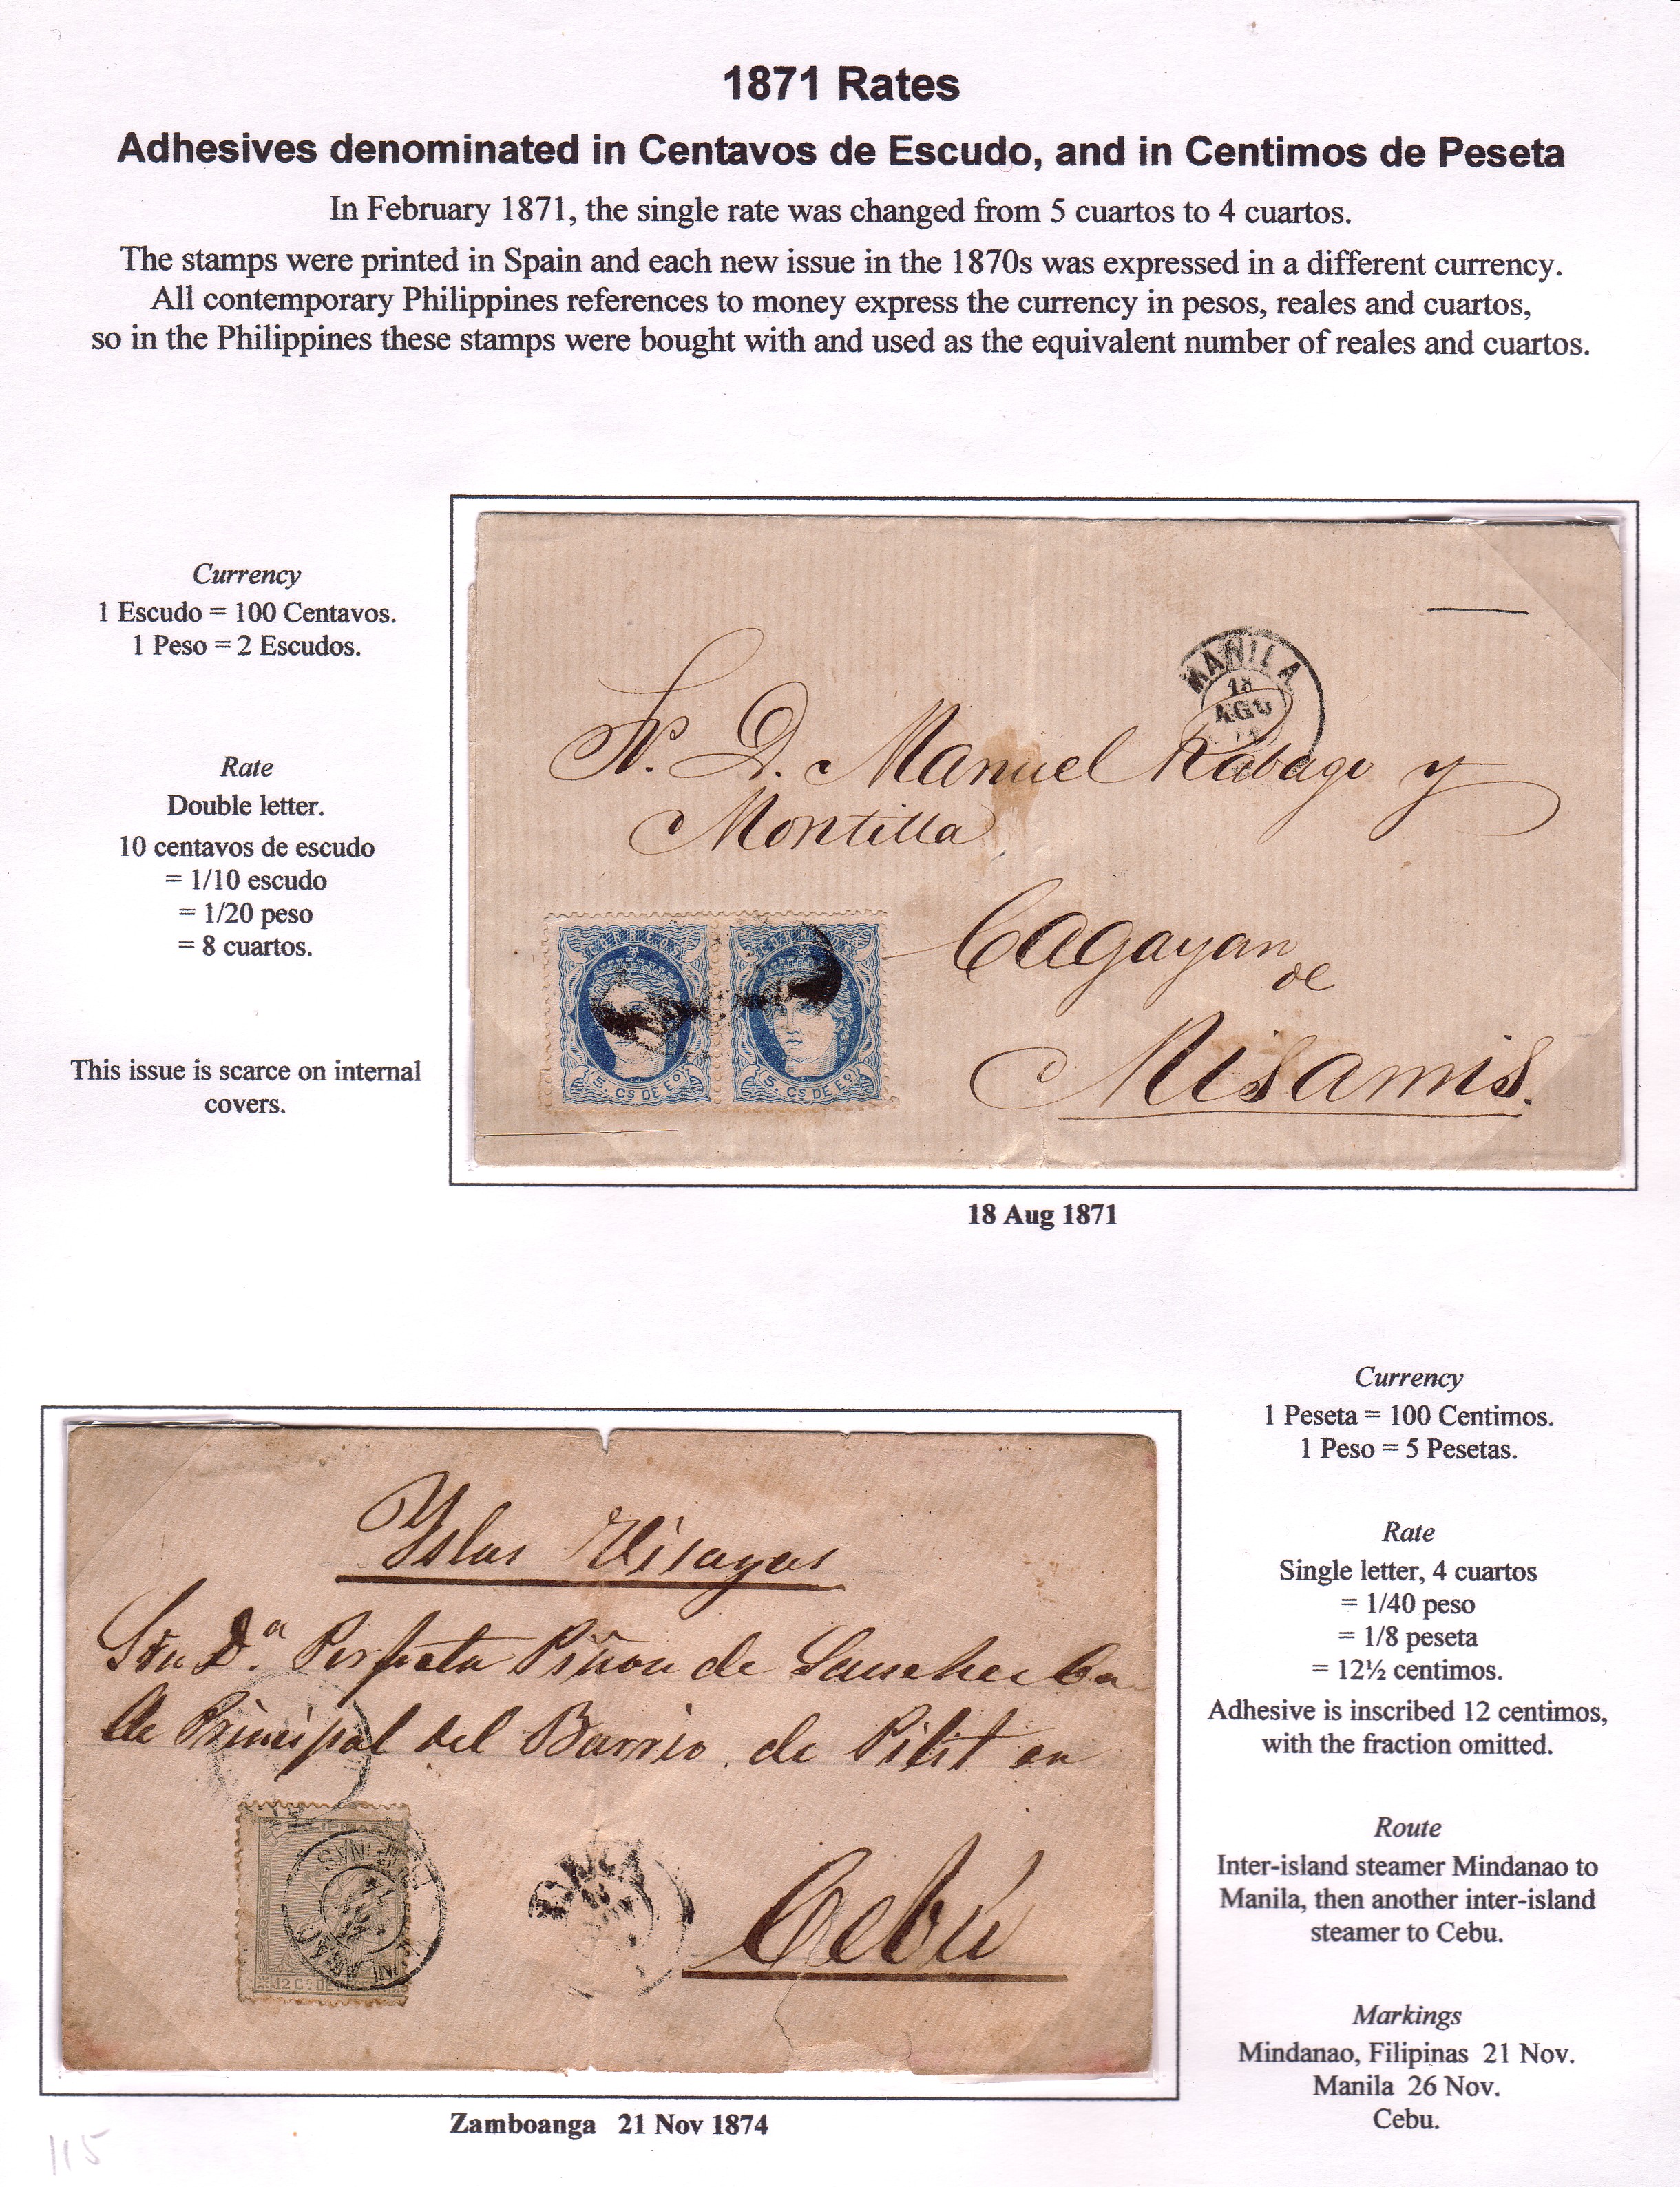 1871 Rates
Adhesives denominated in Centavos de Escudo, and in Centimos de Peseta
In February 1871, the single rate was changed from 5 cuartos to 4 cuartos.
The stamps were printed in Spain and each new issue in the 1870s was expressed in a different currency.
All contemporary Philippines references to money express the currency in pesos, reales and cuartos,
so in the Philippines these stamps were bought with and used as the equivalent number of reales and cuartos.
Currency
1 Escudo = 100 Centavos.
1 Peso = 2 Escudos.
Rate
Double letter.
10 centavos de escudo
= 1/10 escudo
= 1/20 peso
= 8 cuartos.
This issue is scarce on internal
covers.
MANILA
18
AGO
D. Manuel Rabago y
Montilla
Cagayan
de
Misamis.
CORREOS
5. Cs DE Eo
CORREOS
5. Cs DE Eo
18 Aug 1871
Yslas Visayas
Dª. Perfecta Piñon de
de Principal del Barrio de Pilit en
Cebú
FILIPINAS
12 Cs DE
FILIPINAS
Zamboanga 21 Nov 1874
Currency
1 Peseta = 100 Centimos.
1 Peso = 5 Pesetas.
Rate
Single letter, 4 cuartos
= 1/40 peso
= 1/8 peseta
= 12½ centimos.
Adhesive is inscribed 12 centimos,
with the fraction omitted.
Route
Inter-island steamer Mindanao to
Manila, then another inter-island
steamer to Cebu.
Markings
Mindanao, Filipinas 21 Nov.
Manila 26 Nov.
Cebu.
115